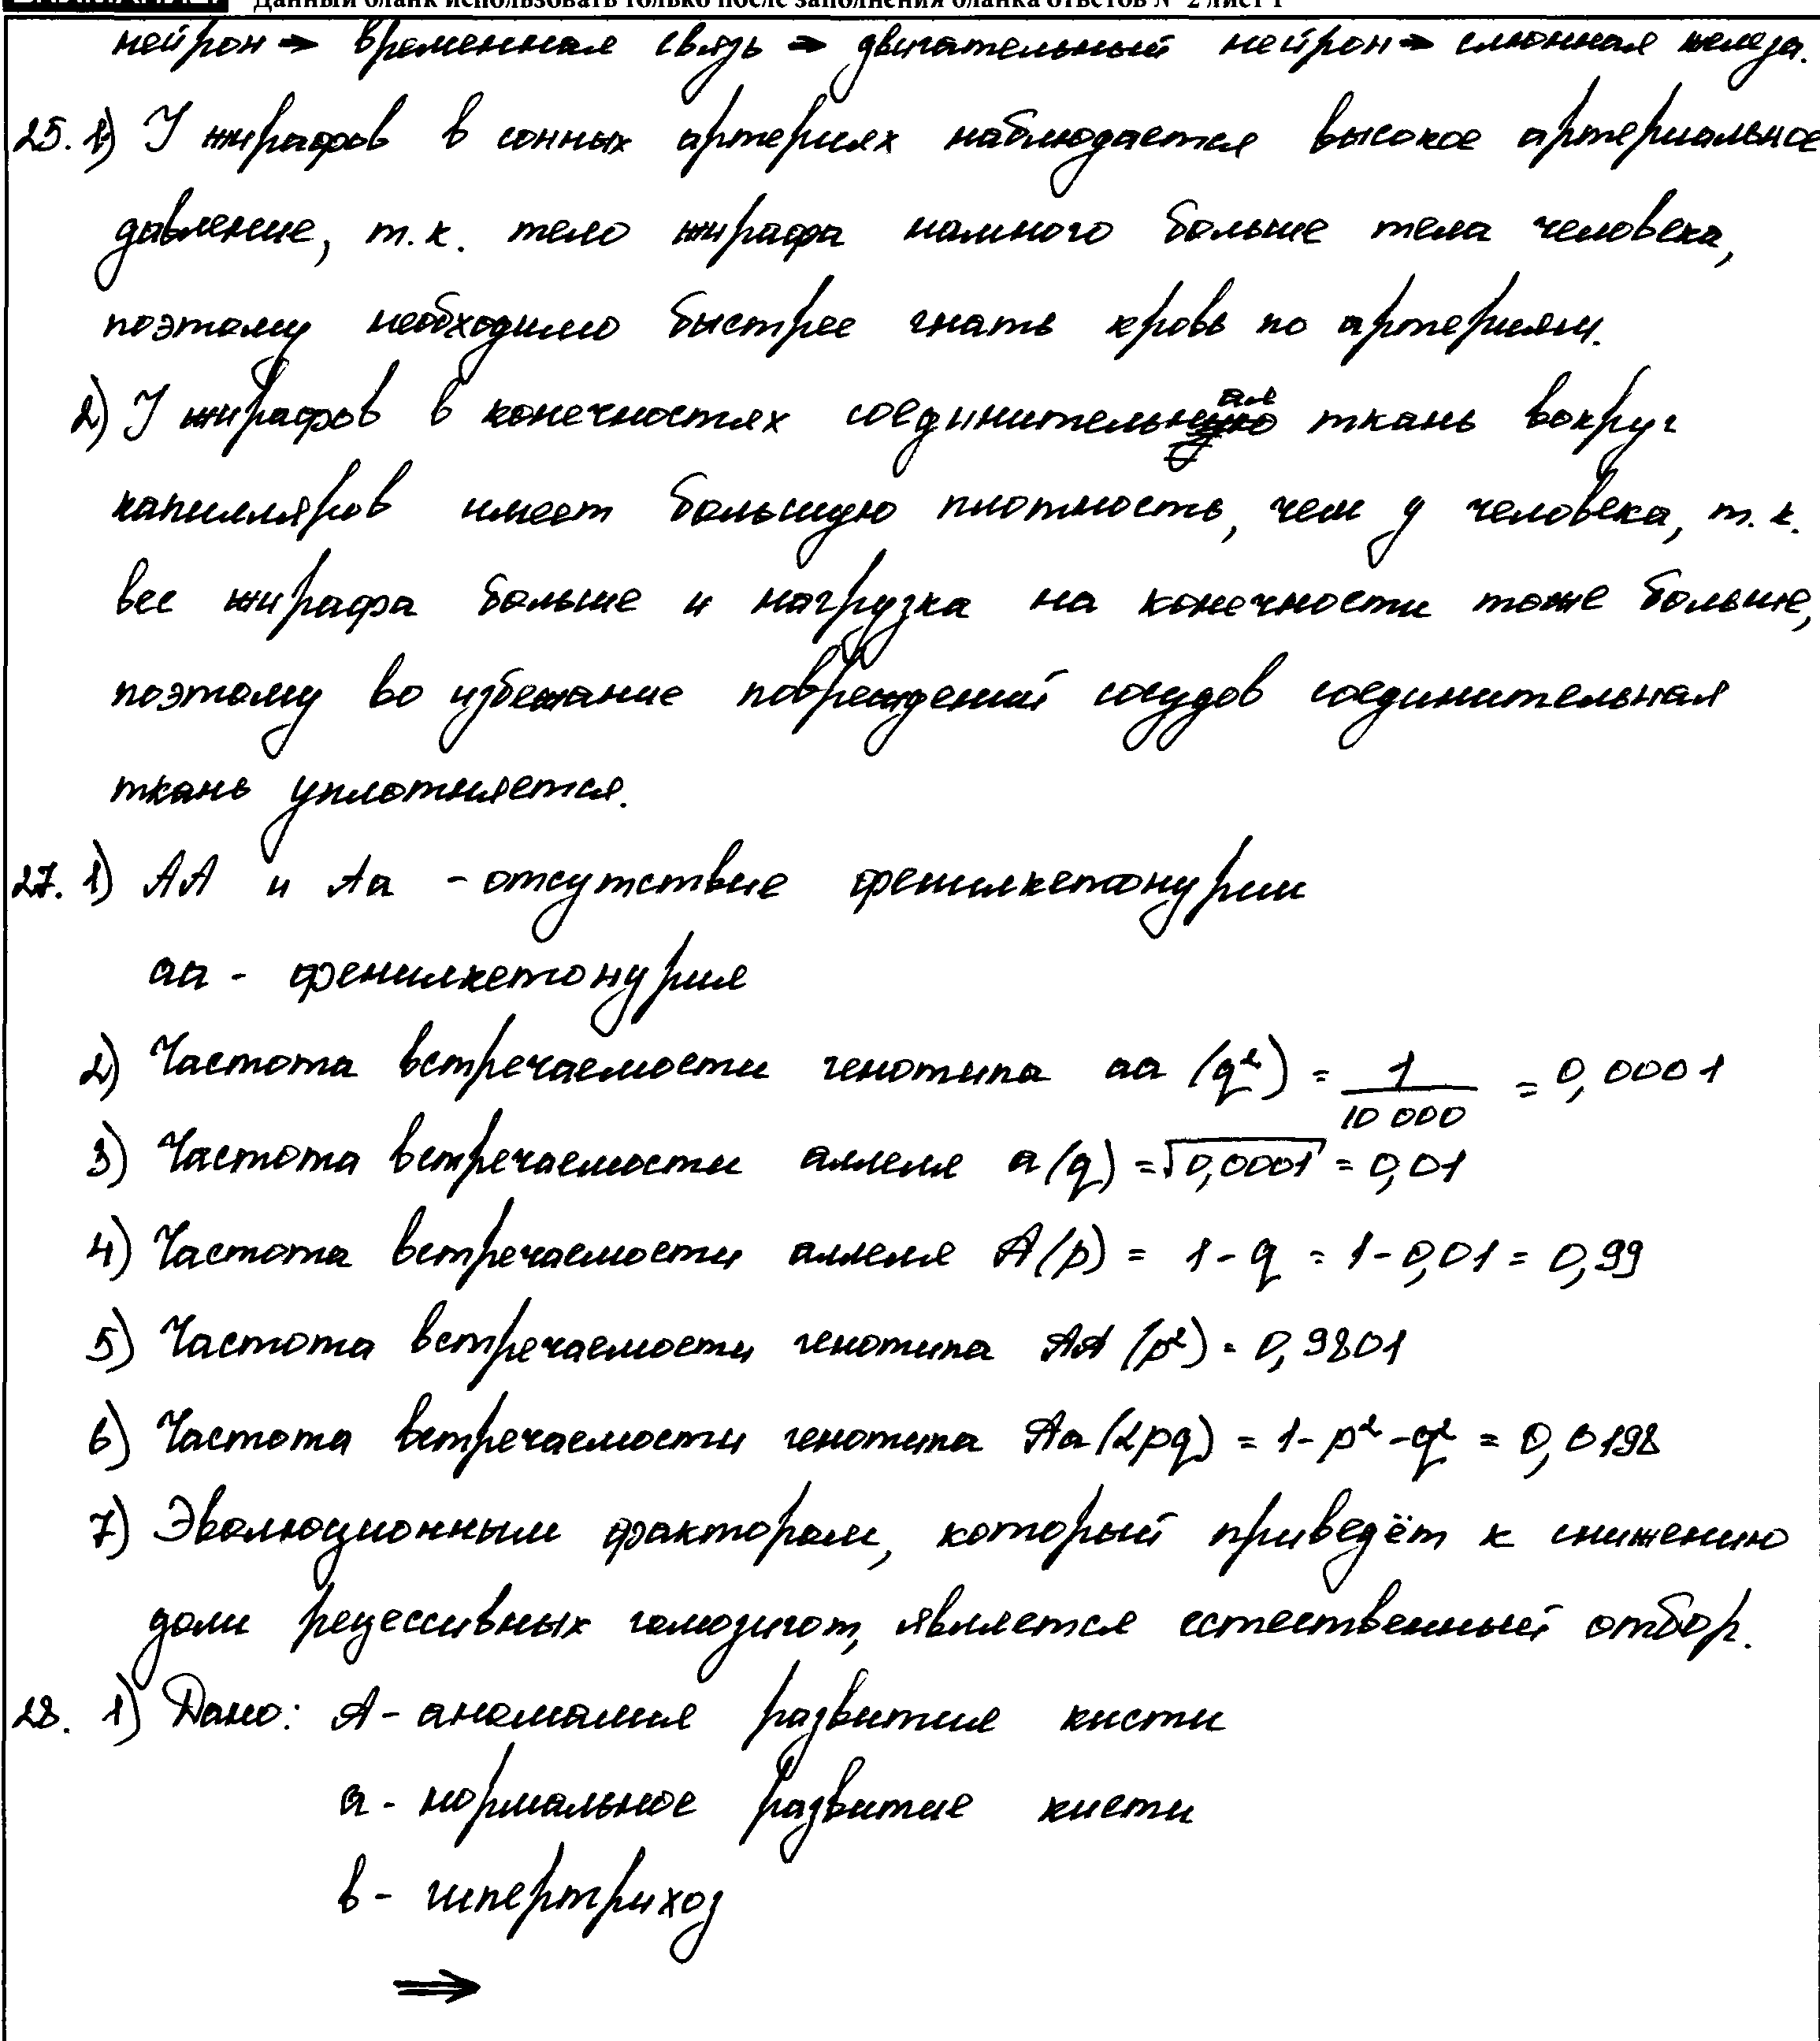 Данный бланк использовать только после заполнения бланка ответов № 2 лист 1
нейрон ⇒ временная связь ⇒ двигательный нейрон ⇒ слюнная железа.
25. 1) У жирафов в сонных артериях наблюдается высокое артериальное
давление, т.к. тело жирафа намного больше тела человека,
поэтому необходимо быстрее гнать кровь по артериям.
2) У жирафов в конечностях соединительная ткань вокруг
капилляров имеет большую плотность, чем у человека, т.к.
вес жирафа больше и нагрузка на конечности тоже больше,
поэтому во избежание повреждений сосудов соединительная
ткань уплотняется.
27. 1) АА и Аа - отсутствие фенилкетонурии
аа - фенилкетонурия
2) Частота встречаемости генотипа аа (q²) = 1/10 000 = 0,0001
3) Частота встречаемости аллеля а (q) = √0,0001 = 0,01
4) Частота встречаемости аллеля А (р) = 1 - q = 1 - 0,01 = 0,99
5) Частота встречаемости генотипа АА (р²) = 0,9801
6) Частота встречаемости генотипа Аа (2pq) = 1 - p² - q² = 0,0198
7) Эволюционным фактором, который приведёт к снижению
доли рецессивных гомозигот, является естественный отбор.
28. 1) Дано: А - аномалия развития кисти
а - нормальное развитие кисти
в - гипертрихоз
⇒